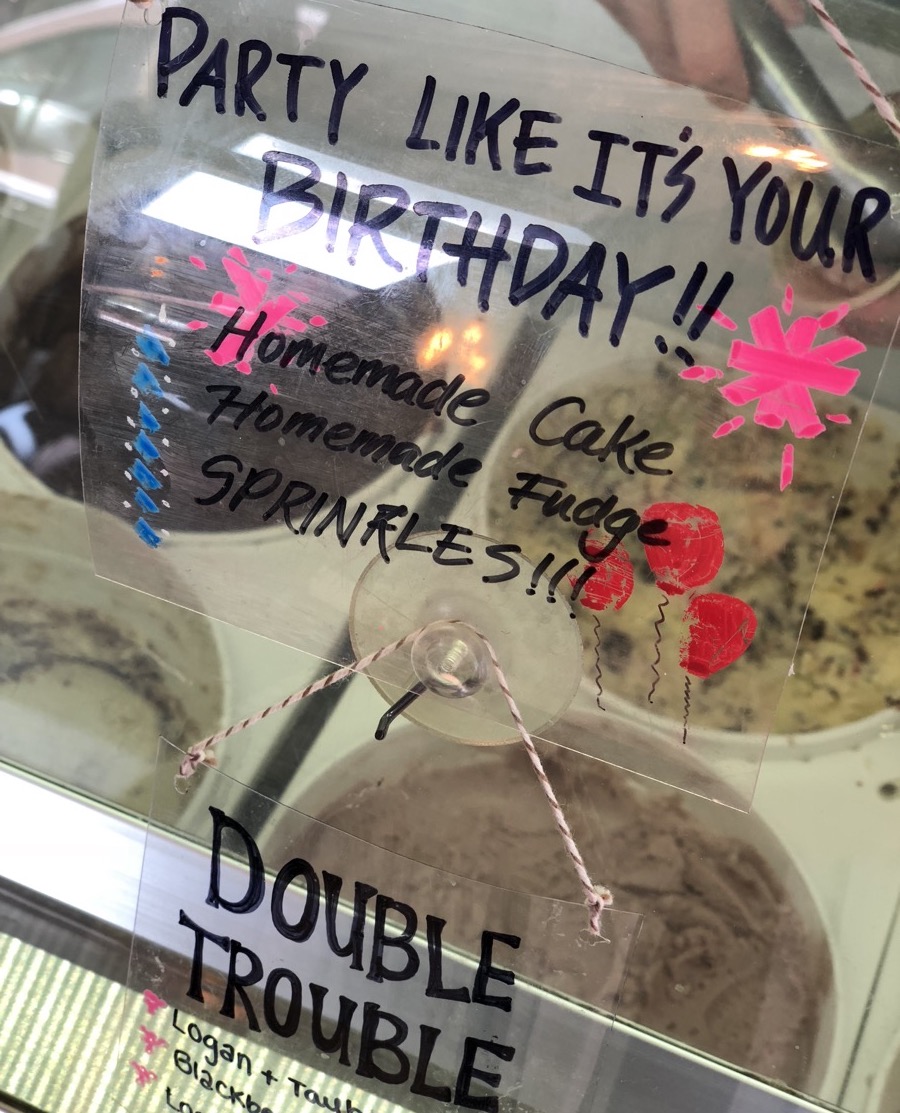 PARTY LIKE IT'S YOUR
BIRTHDAY!!
Homemade Cake
Homemade Fudge
SPRINKLES!!!
DOUBLE
TROUBLE
Logan +